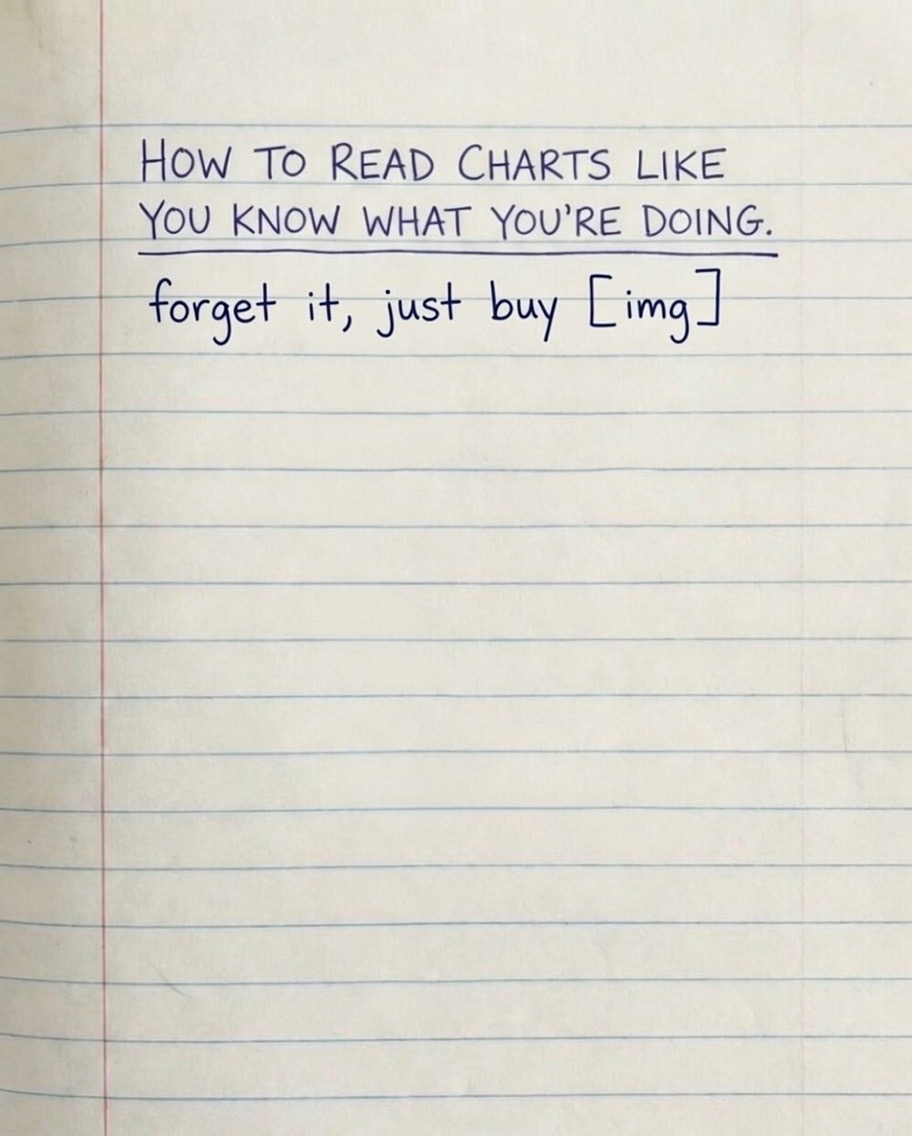 HOW TO READ CHARTS LIKE
YOU KNOW WHAT YOU'RE DOING.
forget it, just buy [img]